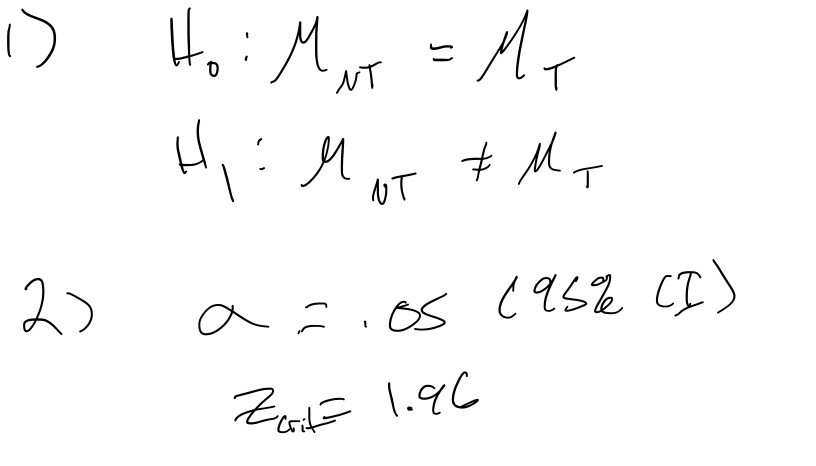 1) H₀ : μ_NT = μ_T
H₁ : μ_NT ≠ μ_T
2) α = .05 (95% CI)
Z_crit = 1.96